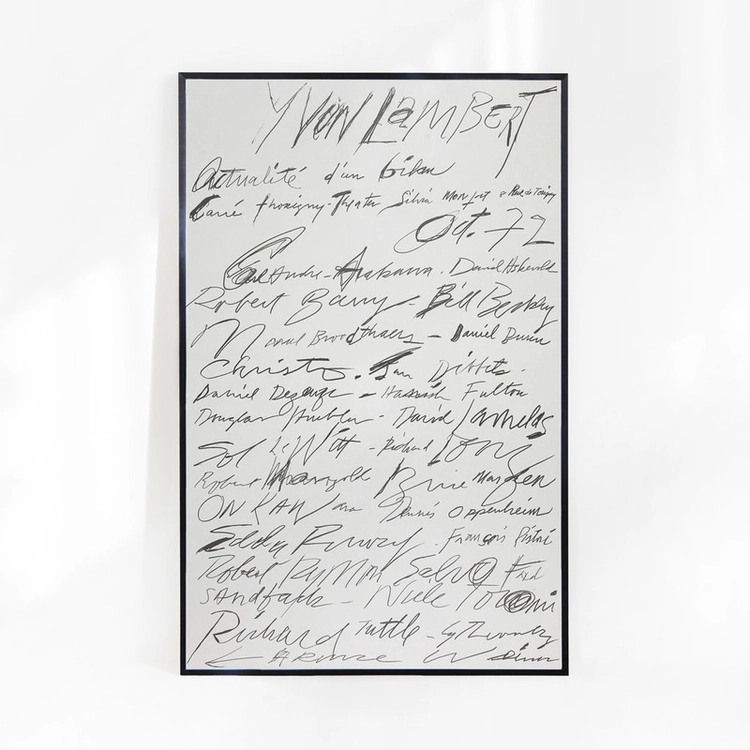 YVON LAMBERT
Actualité d'un bilan
Carré Thorigny-Theater Silvia Monfort Rue de Thorigny
Oct. 72
Carl Andre - Arakawa. David Askevold
Robert Barry - Bill Beckley
Marcel Broodthaers - Daniel Buren
Christo. Jan Dibbets.
Daniel Dezeuze - Hamish Fulton
Douglas Huebler - David Lamelas
Sol LeWitt - Richard Long
Robert Mangold Brice Marden
ON KAWara Dennis Oppenheim
Edda Renouf. François Ristori
Robert Ryman Salvo Fred
SAndback - Niele Toroni
Richard Tuttle - Cy Twombly
LAwrence Weiner